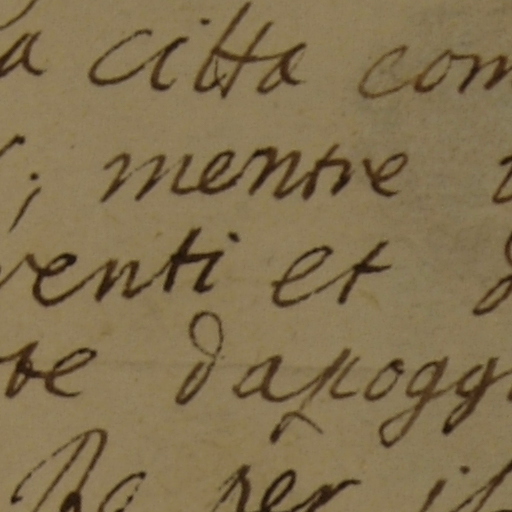 a citta com
; mentre
venti et
te dapogg
per il